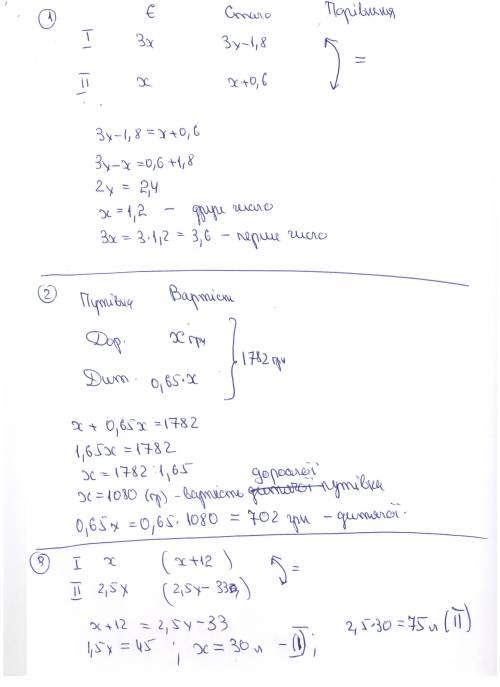 ① Є Стало Порівняння
I 3x 3x-1,8
II x x+0,6 =
3x-1,8=x+0,6
3x-x=0,6+1,8
2x = 2,4
x=1,2 - друге число
3x=3·1,2=3,6 - перше число
② Путівка Вартість
Дор. x грн
1782 грн
Дит. 0,65·x
x + 0,65x = 1782
1,65x = 1782
x = 1782:1,65
дорослої
x=1080 (гр) - вартість дитячої путівки
0,65x = 0,65·1080 = 702 грн - дитячої.
I x (x+12)
II 2,5x (2,5x-33) =
x+12 = 2,5x-33
1,5x = 45 ; x = 30 л - (I);
2,5·30=75 л (II)